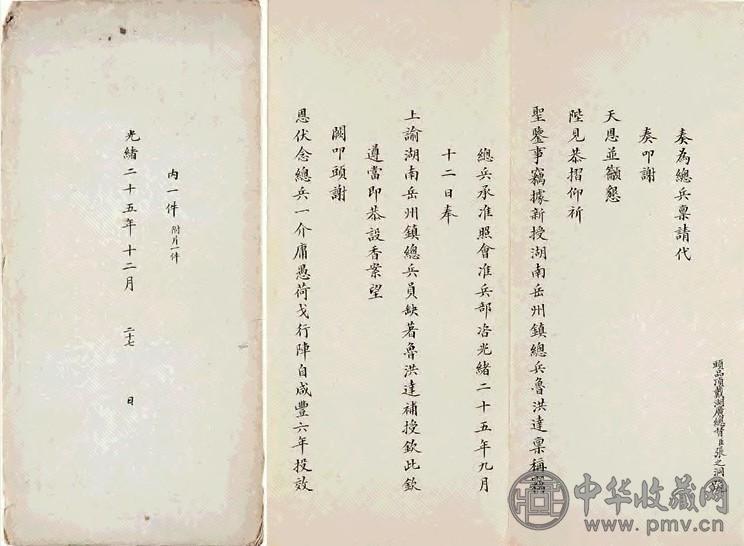 頭品頂戴湖廣總督臣張之洞
奏為總兵稟請代
奏叩謝
天恩並籲懇
陛見恭摺仰祈
聖鑒事竊據新授湖南岳州鎮總兵魯洪達稟稱竊
總兵承准照會准兵部咨光緒二十五年九月
十二日奉
上諭湖南岳州鎮總兵員缺著魯洪達補授欽此欽
遵當即恭設香案望
闕叩頭謝
恩伏念總兵一介庸愚荷戈行陣自咸豐六年投效
內一件 附片一件
光緒二十五年十二月 二十七 日
中华收藏网
www.pmv.cn